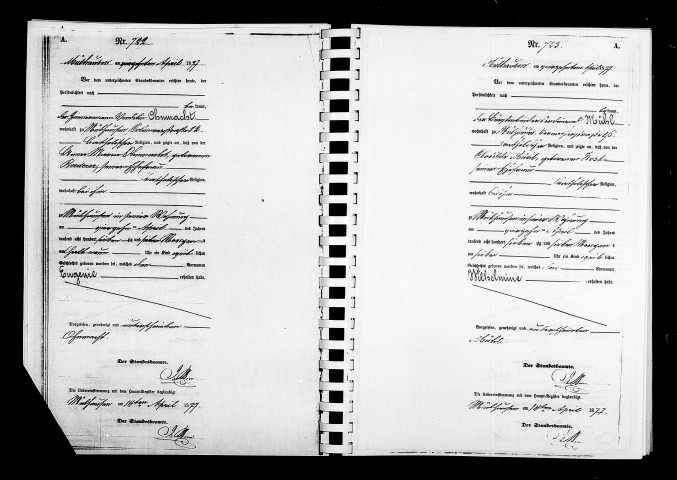 A.
Nr. 722.
Mülhausen am vierzehnten April 1877
Vor dem unterzeichneten Standesbeamten erschien heute, der
Persönlichkeit nach
bekannt,
Ohnmacht
wohnhaft zu Mülhausen
katholischer Religion, und zeigte an, daß von der
Maria Ohnmacht, geborenen
seiner Ehefrau
katholischer Religion,
wohnhaft bei ihm
zu Mülhausen in seiner Wohnung
am vierzehnten April des Jahres
tausend acht hundert siebenzig und sieben Morgens
um halb neun Uhr ein Kind weiblichen
Geschlechts geboren worden sei, welches den Vornamen
Eugenie erhalten habe.
Vorgelesen, genehmigt und unterschrieben
Ohnmacht.
Der Standesbeamte.
Die Uebereinstimmung mit dem Haupt-Register beglaubigt.
Mülhausen am 14ten April 1877.
Der Standesbeamte.
Nr. 723.
A.
Mülhausen am vierzehnten April 1877
Vor dem unterzeichneten Standesbeamten erschien heute, der
Persönlichkeit nach
bekannt,
der Bürstenbinder Ferdinand Mühl
wohnhaft zu Mülhausen
katholischer Religion, und zeigte an, daß von der
Mühl, geborenen
seiner Ehefrau
katholischer Religion,
wohnhaft bei ihm
zu Mülhausen in seiner Wohnung
am vierzehnten April des Jahres
tausend acht hundert siebenzig und sieben Morgens
um sieben Uhr ein Kind weiblichen
Geschlechts geboren worden sei, welches den Vornamen
Wilhelmine erhalten habe.
Vorgelesen, genehmigt und unterschrieben
Mühl
Der Standesbeamte.
Die Uebereinstimmung mit dem Haupt-Register beglaubigt.
Mülhausen am 14ten April 1877
Der Standesbeamte.